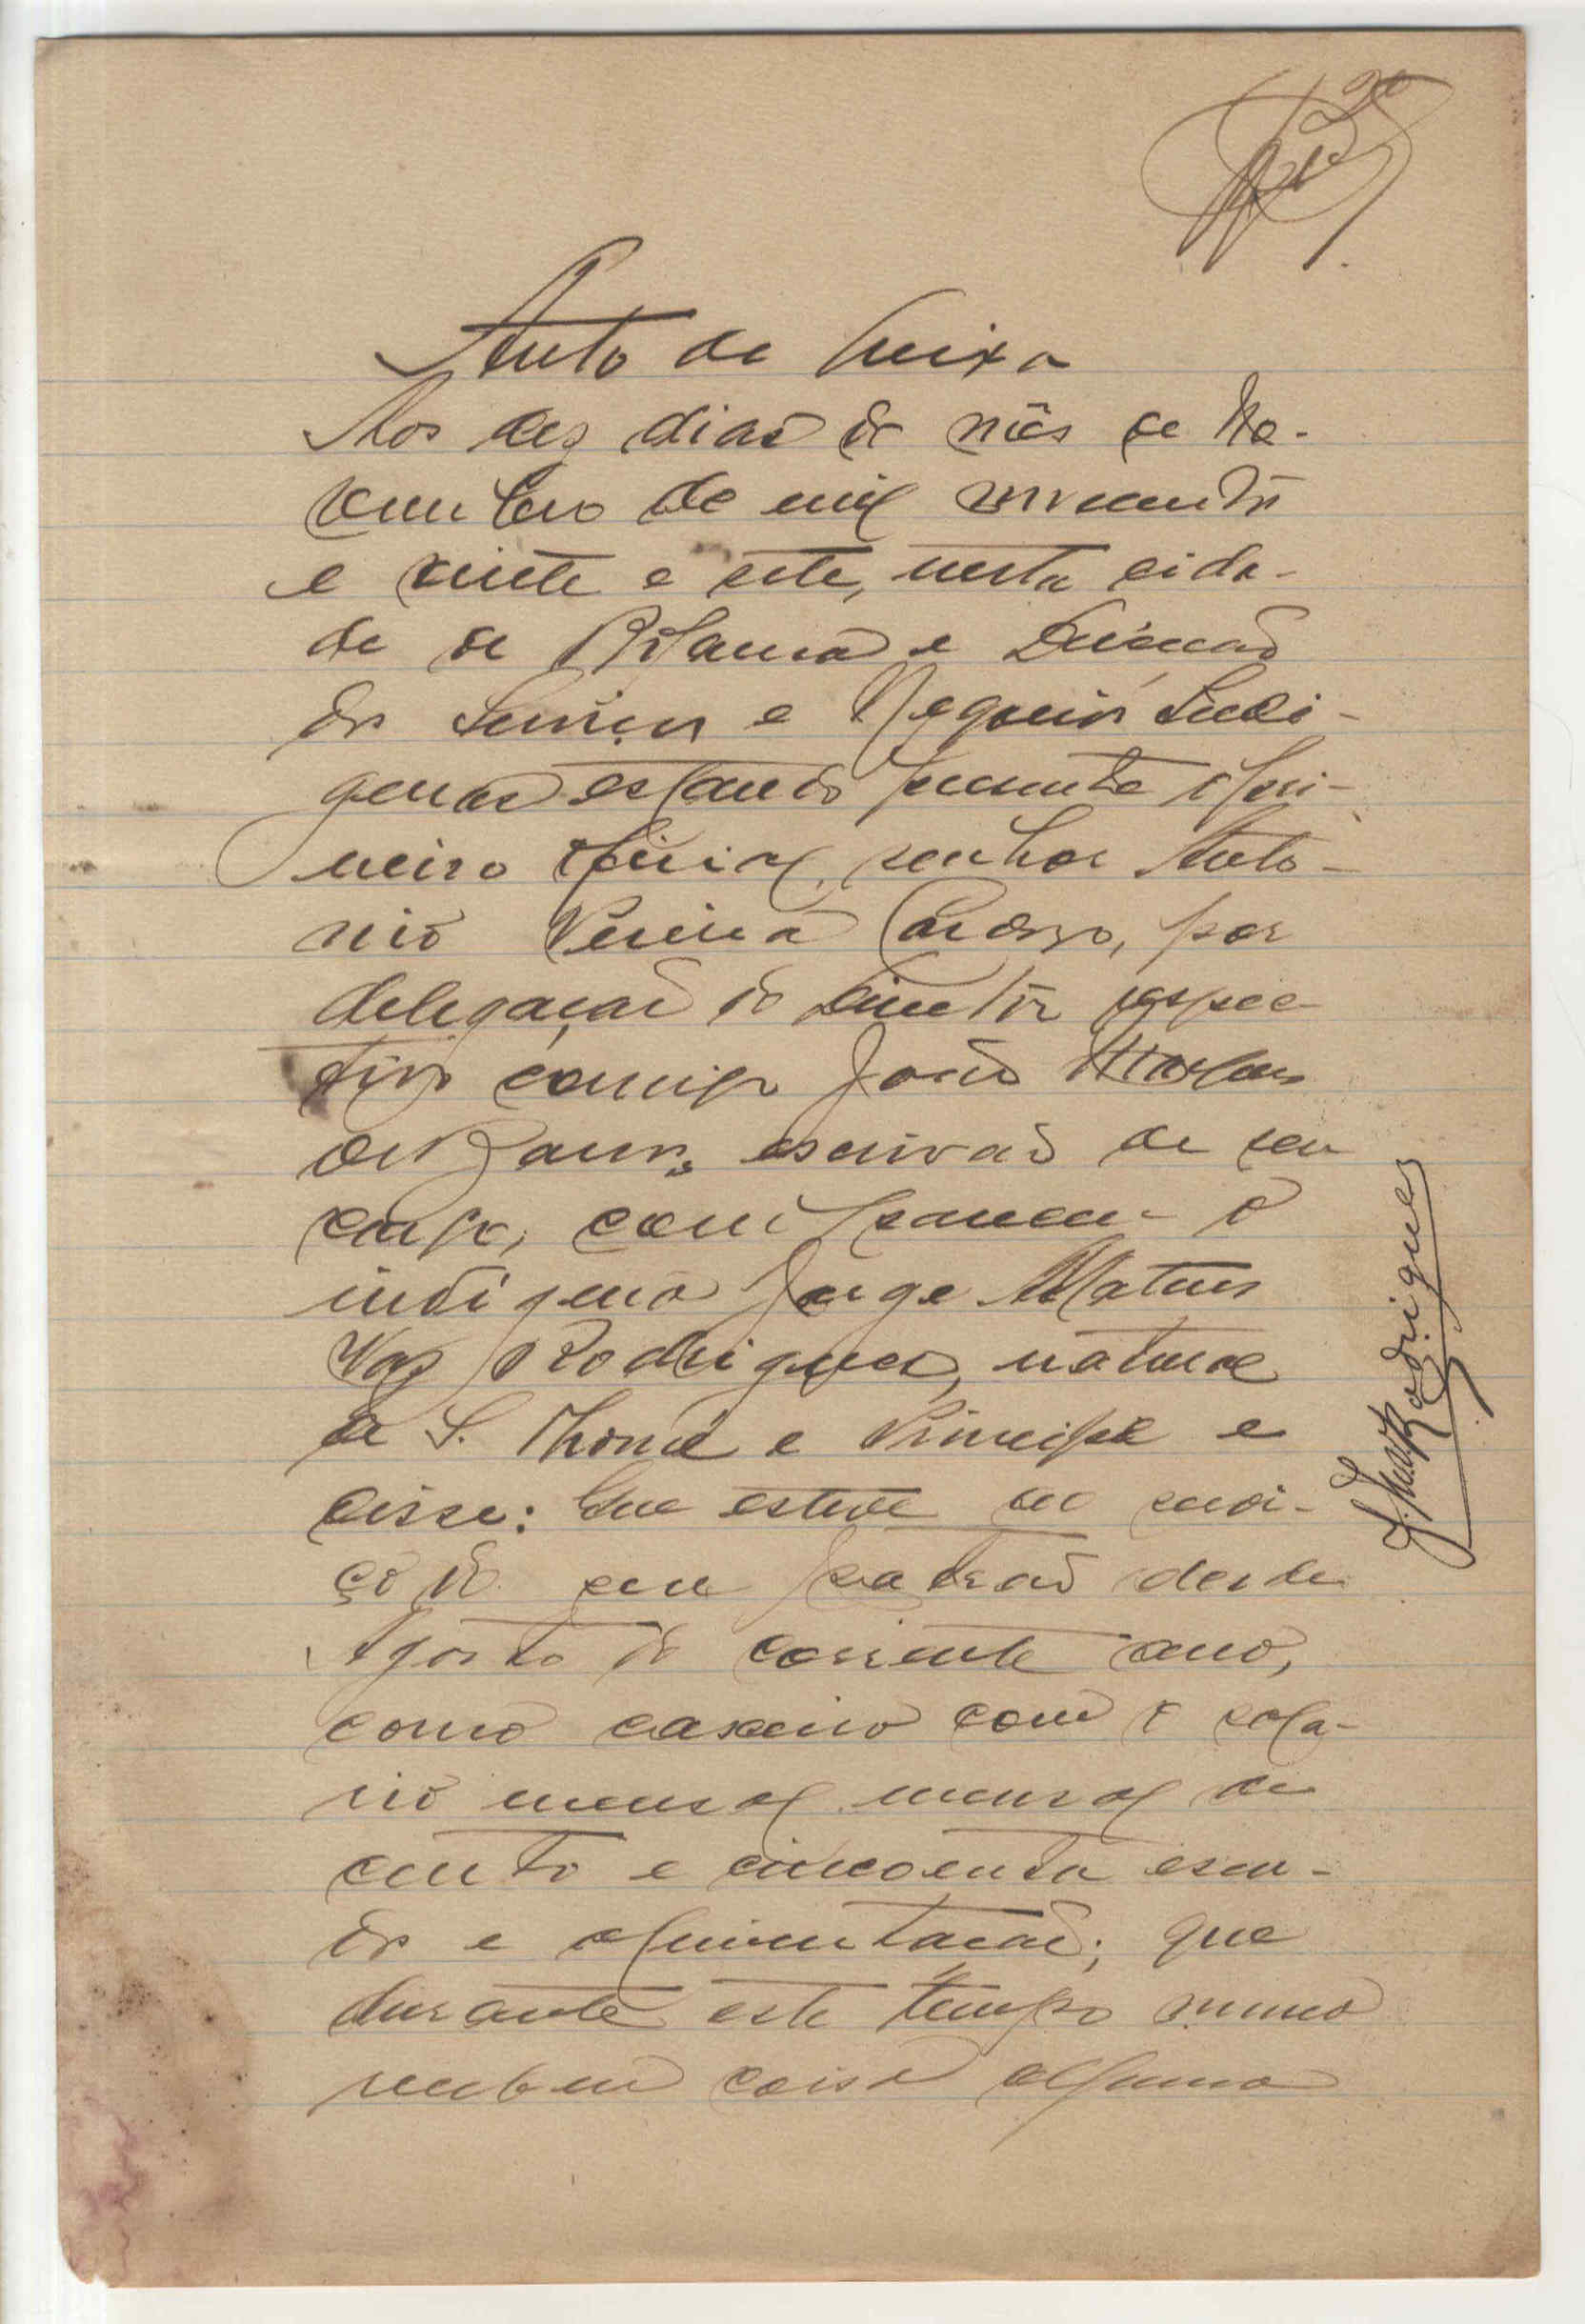 Auto de Queixa
Aos dez dias do mês de No-
vembro de mil novecentos
e vinte e sete, nesta cida-
de de Bolama e Direcção
dos Serviços e Negocios Indi-
genas estando presente o pri-
meiro oficial, senhor Anto-
nio Pereira Cardoso, por
delegação do Director respec-
tivo comigo João
de Barros, escrivão de seu
cargo, compareceu o
indigena Jorge Matos
Vaz Rodrigues, natural
de S. Thomé e Principe e
disse: Que esteve ao servi-
ço do seu patrão desde
Agosto do corrente ano,
como caxeiro com o sala-
rio mensal mensal de
cento e cincoenta escu-
dos e alimentação; que
durante este tempo nunca
recebeu coisa alguma
Rodrigues